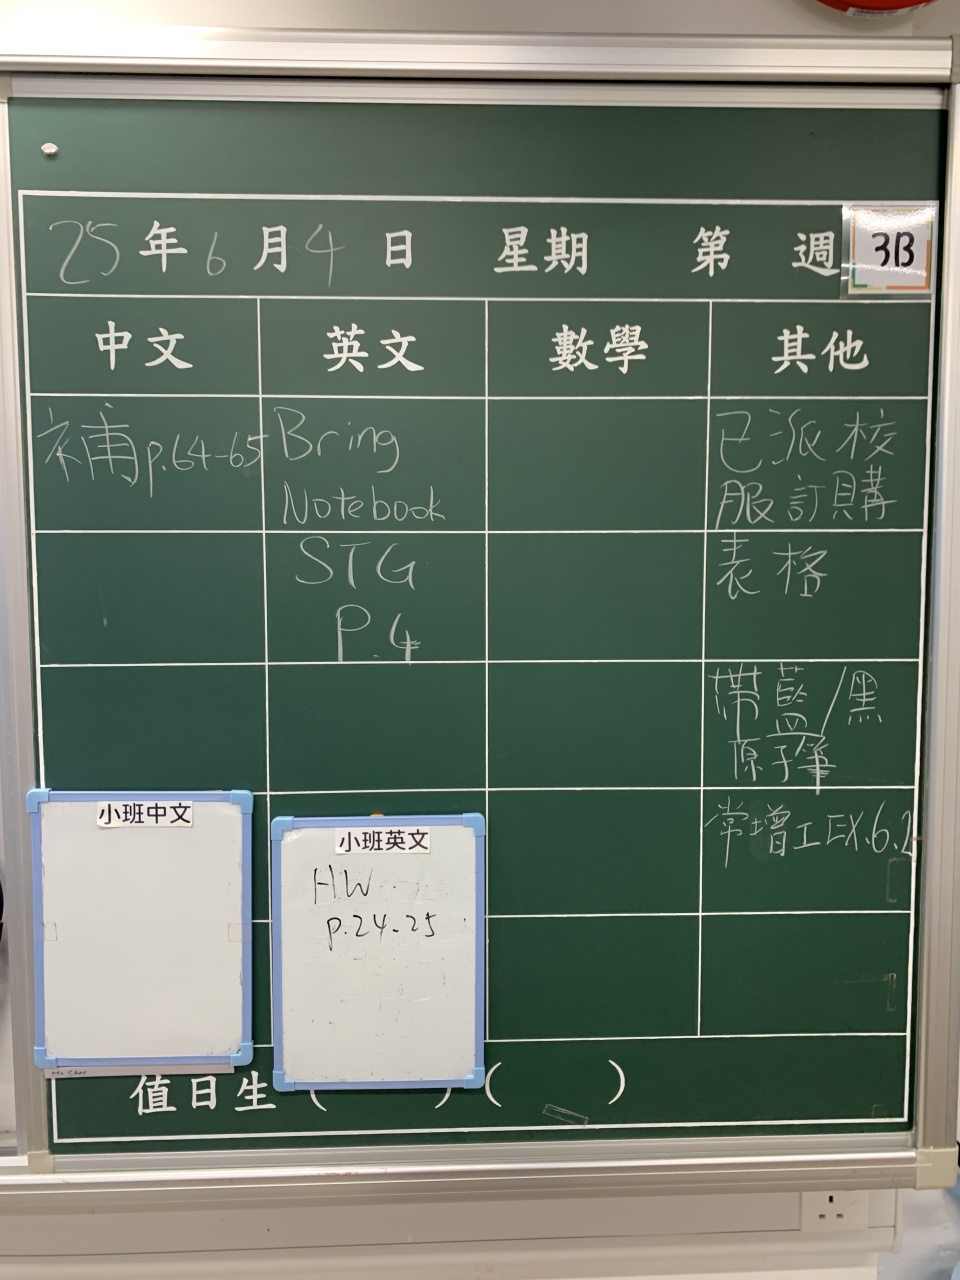 25年6月4日 星期 第 週 3B
中文 英文 數學 其他
補p.64-65
Bring
Notebook
STG
P.4
已派校
服訂購
表格
帶藍/黑
原子筆
常增工EX.6.2
小班中文
小班英文
HW
p.24-25
值日生( )( )